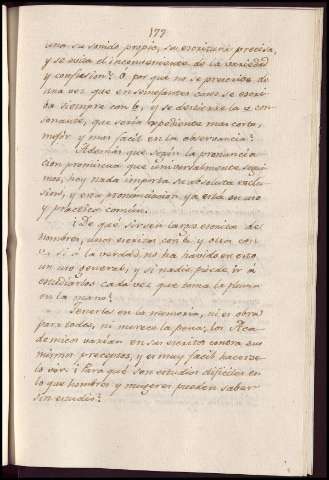 177
uno su sonido propio, su escritura precisa,
y se evita el inconveniente de la variedad
y confusion? O por que no se prescrive de
una vez que en semejantes casos se escri-
ba siempre con b, y se destierre la v con-
sonante, que seria expediente mas corto,
mejor y mas facil en la observancia?
Ademas que segun la pronuncia-
cion promiscua que universalmente segui-
mos, hoy nada importa su absoluta exclu-
sion, y esta pronunciacion ya está en uso
y practica comun.
¿De qué sirven larga cronica de
nombres, unos escritos con b, y otra con
v, si a la verdad no ha havido en esto
un uso general, y si nadie puede ir á
estudiarlos cada vez que toma la pluma
en la mano?
Tenerlos en la memoria, ni es obra
para todos, ni merece la pena; los Aca-
demicos varian en sus escritos contra sus
mismos preceptos, y es muy facil hacerse-
lo vér: ¿Para qué son estudios dificiles en
lo que hombres y mugeres pueden saber
sin estudio?